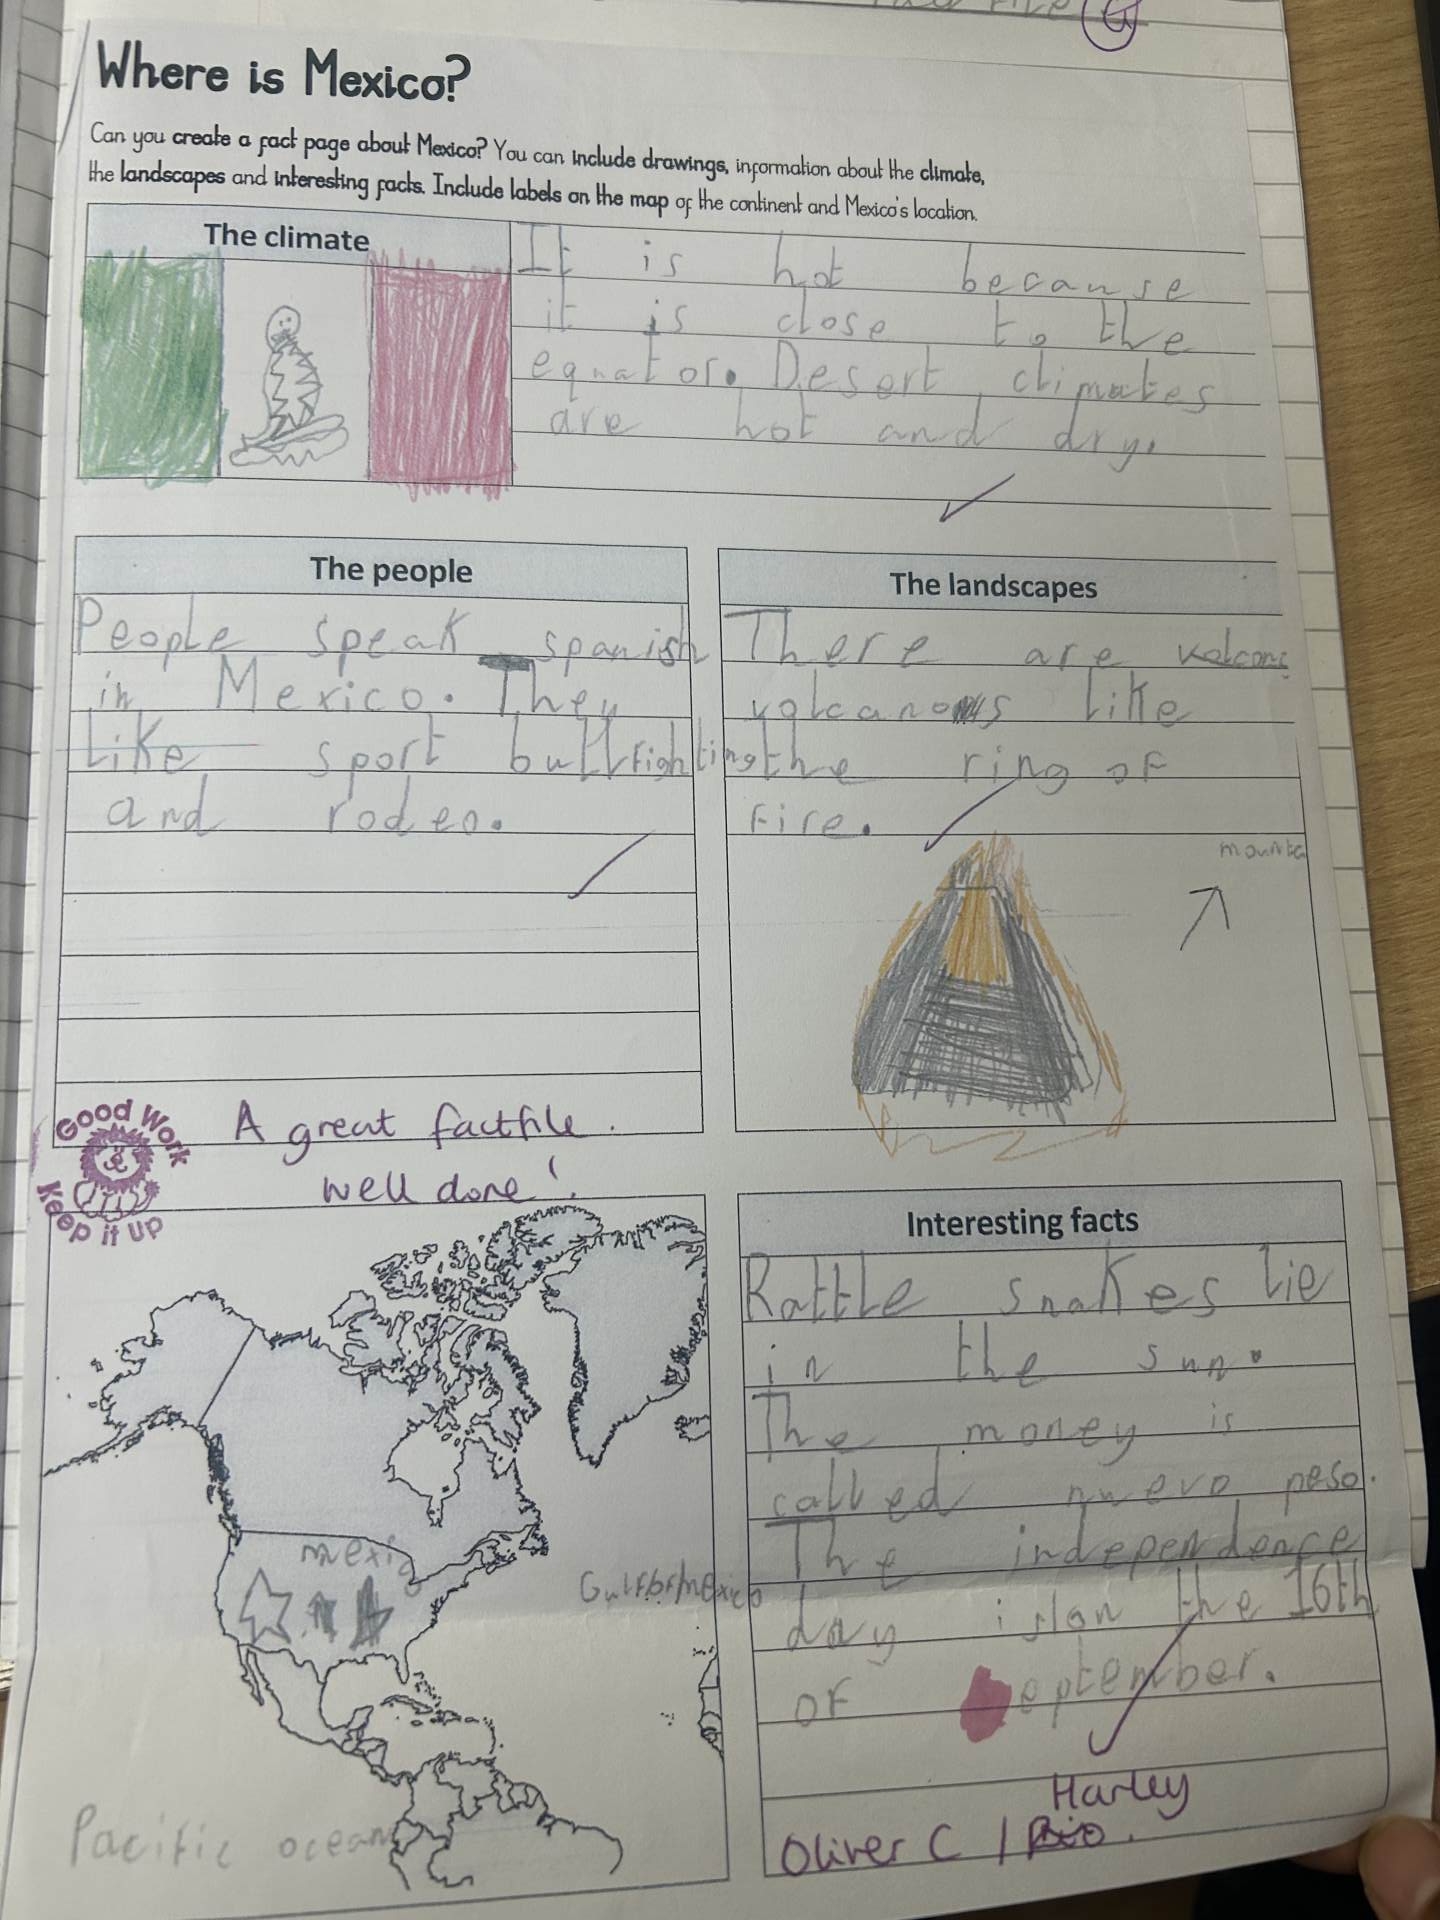 Where is Mexico?
Can you create a fact page about Mexico? You can include drawings, information about the climate,
the landscapes and interesting facts. Include labels on the map of the continent and Mexico's location.
The climate
It is hot because
it is close to the
equator. Desert climates
are hot and dry.
The people
People speak spanish
in Mexico. They
like sport bullfighting
and rodeo.
The landscapes
There are
volcanos like
the ring of
fire.
mounta
GOOD WORK
Keep it up
A great factfile.
well done!
mexico
Gulf of mexico
Pacific ocean
Interesting facts
Rattle snakes lie
in the sun.
The money is
called nuevo peso.
The independence
day is on the 16th
of eptember.
Harley
Oliver C /